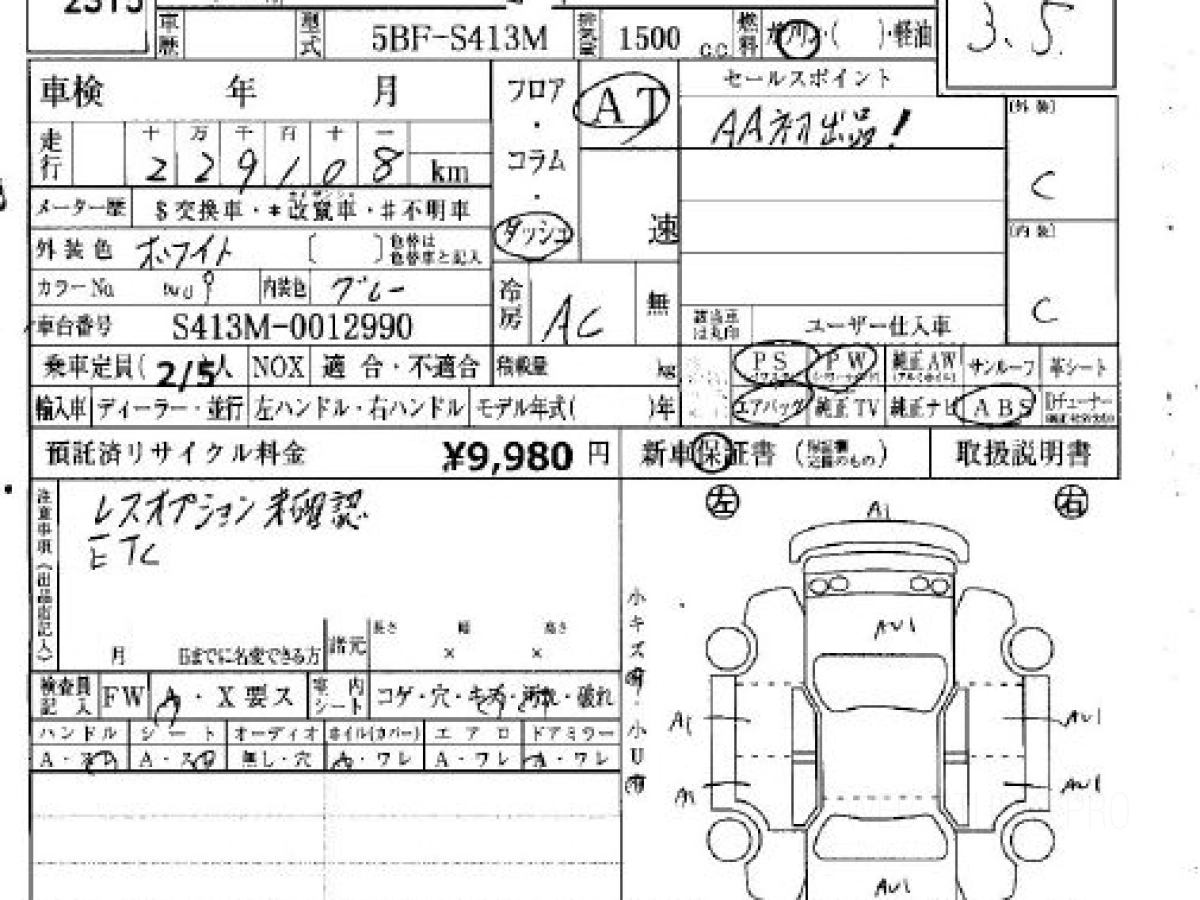 2315
車歴 型式 5BF-S413M 排気量 1500 c.c. 燃料 ガソリン・( )・軽油 3.5
車検 年 月 フロア・コラム・ダッシュ AT 速 セールスポイント
AA初出品!
(外装) C
走行 十 万 千 百 十 一
2 2 9 1 0 8 km
メーター歴 $交換車・*改竄車・#不明車
(内装) C
外装色 ホワイト ( ) 色替は 色替車と記入
カラーNo 内装色 グレー 冷房 AC 無
車台番号 S413M-0012990 該当車は丸印 ユーザー仕入車
乗車定員( 2/5 )人 NOX 適合・不適合 積載量 kg PS PW 純正AW サンルーフ 革シート
輸入車 ディーラー・並行 左ハンドル・右ハンドル モデル年式( )年 エアバッグ 純正TV 純正ナビ ABS
預託済リサイクル料金 ¥9,980 円 新車保証書 取扱説明書
注意事項(出品店記入)
レスオプション未確認
ETC
左 右
A1
小キズ有・小U有
AU1
月 日までに名変できる方 諸元 長さ × 幅 × 高さ
検査員記入 FW A・X要ス 室内シート コゲ・穴・キズ・汚れ・破れ
ハンドル シート オーディオ ホイル(カバー) エアロ ドアミラー
A・スレ A・スレ 無し・穴 A・ワレ A・ワレ A・ワレ
A1 AU1
A1 AU1
AU1